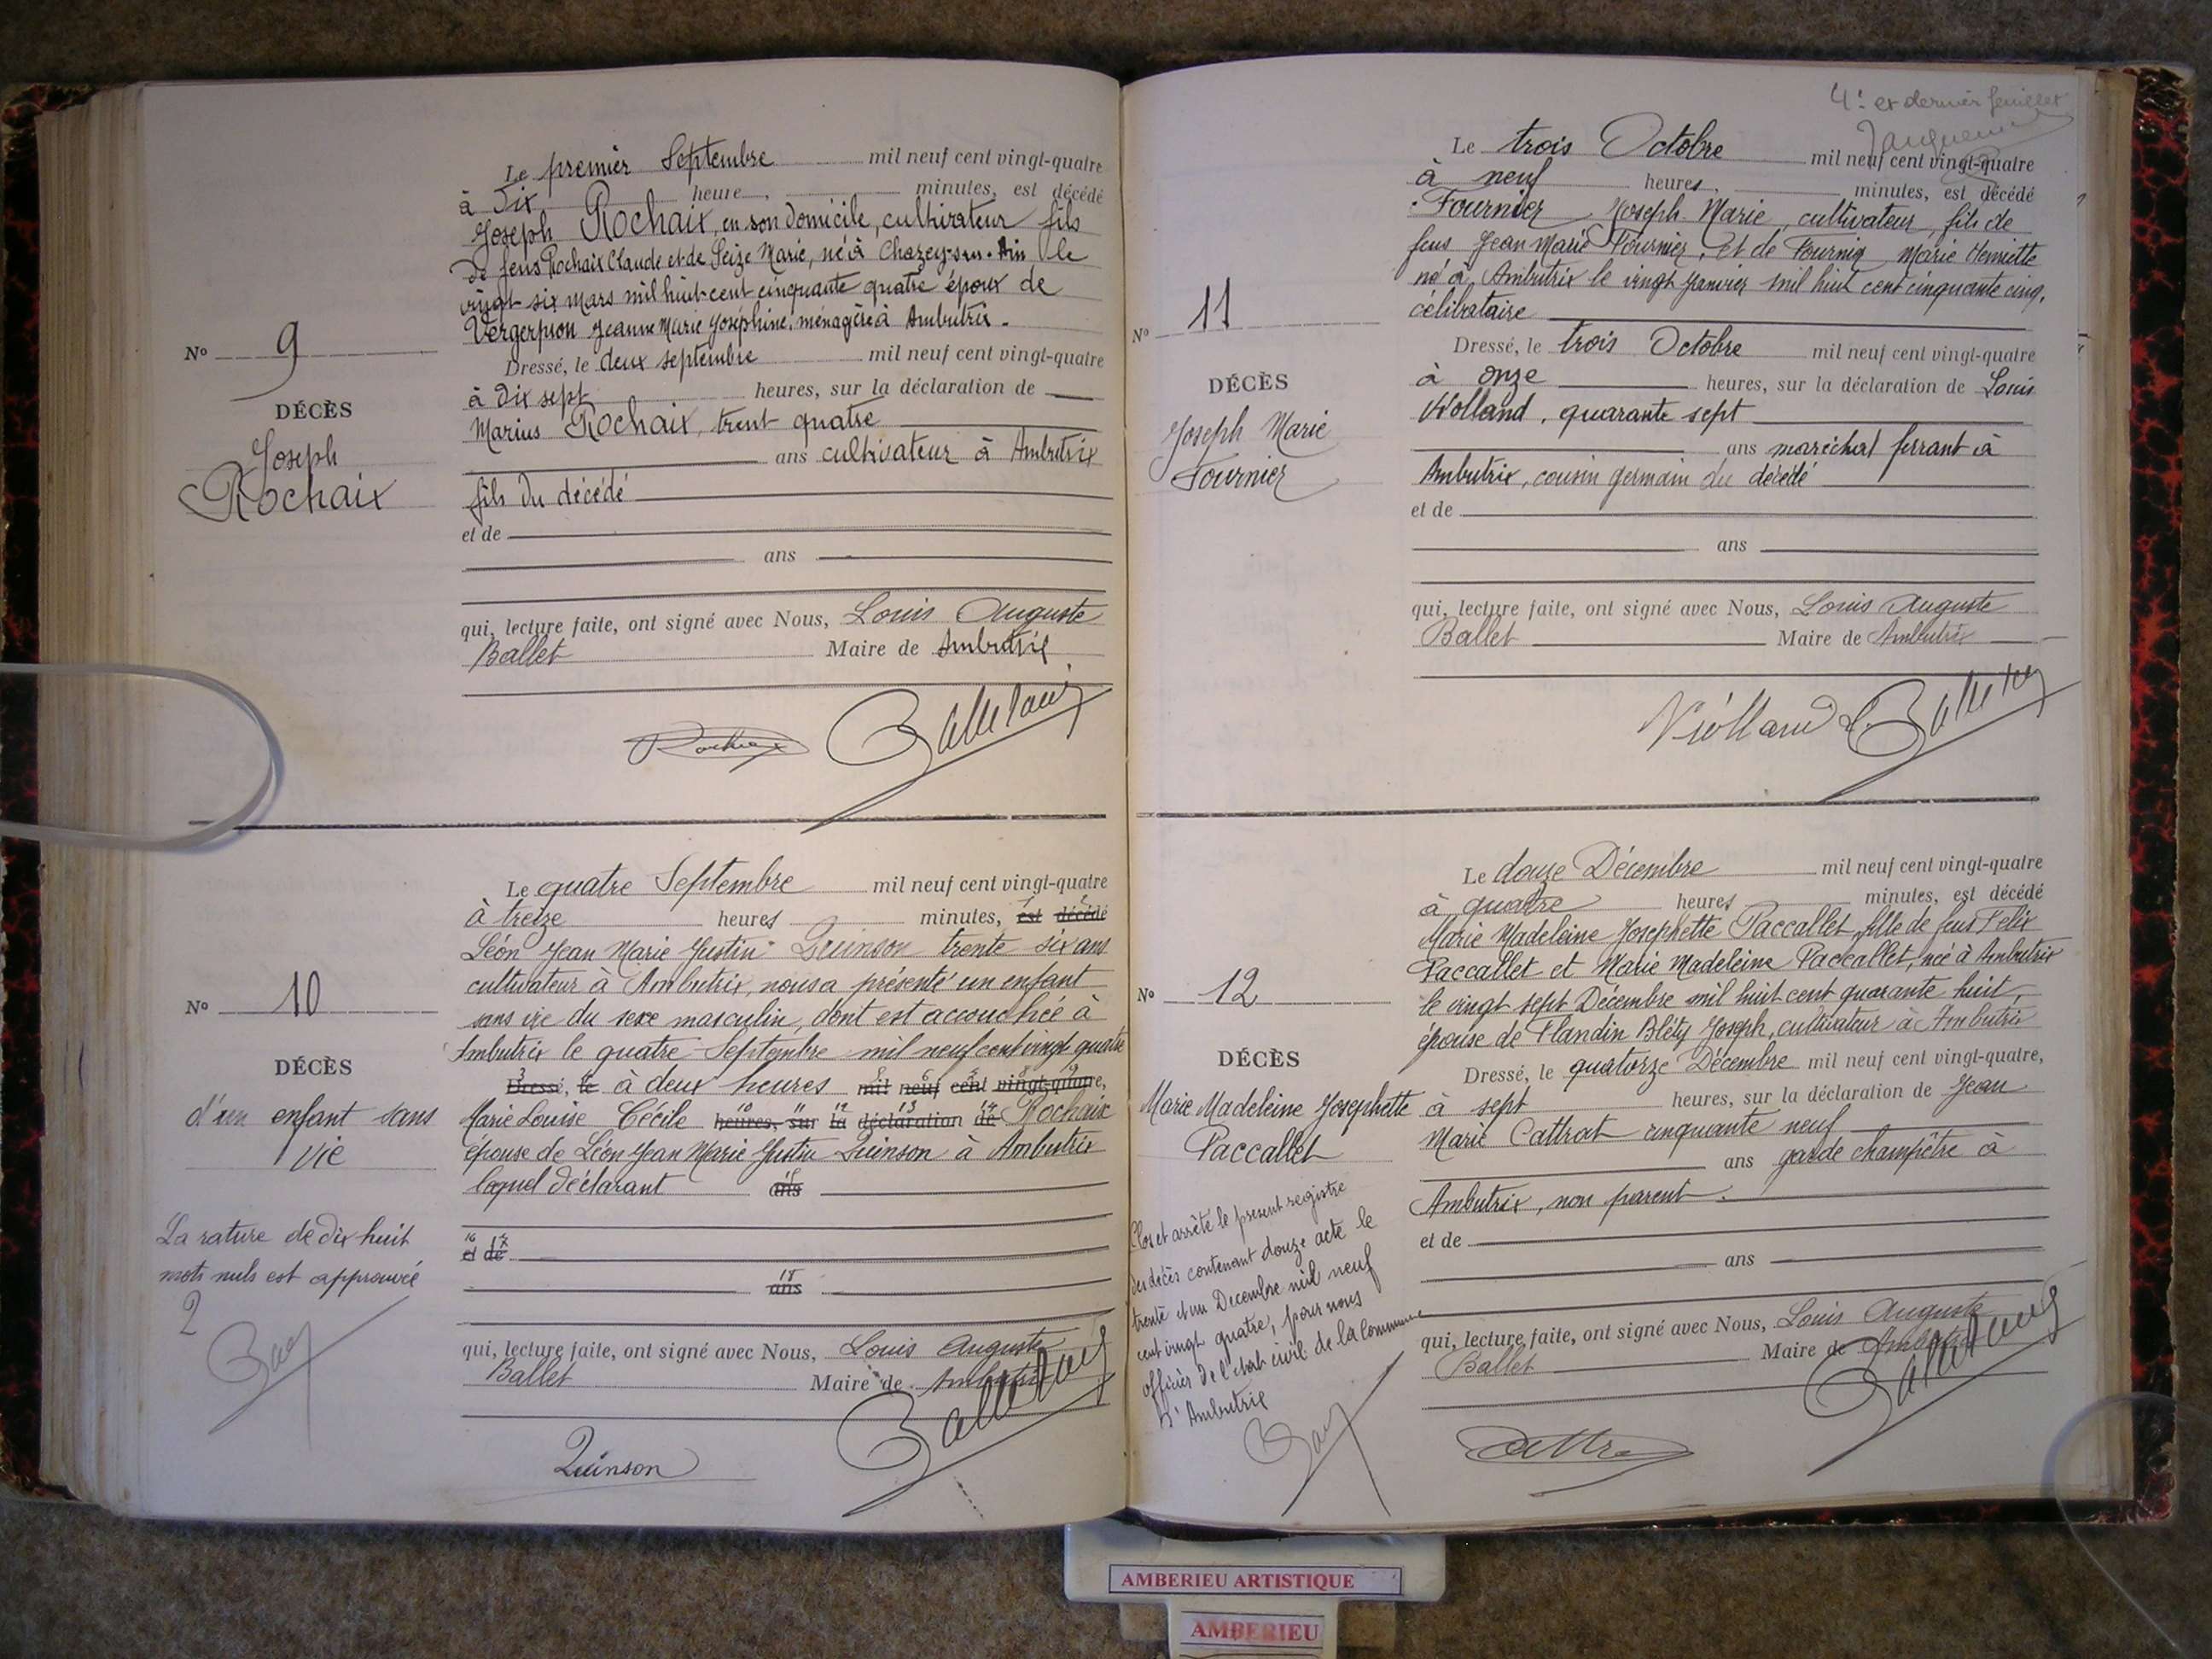 Le premier Septembre mil neuf cent vingt-quatre
à Dix heure, minutes, est décédé
Joseph Rochaix, en son domicile, cultivateur fils
de feus Rochaix Claude et de Seize Marie, né à Chazey-sur-Ain le
vingt-six mars mil huit-cent cinquante quatre époux de
Vergerpion Jeanne Marie Joséphine, ménagère à Ambutrix.
Nº 9
Dressé, le deux septembre mil neuf cent vingt-quatre
à Dix sept heures, sur la déclaration de
DÉCÈS
Marius Rochaix, trent quatre
Joseph
ans cultivateur à Ambutrix
Rochaix
fils du décédé
et de
ans
qui, lecture faite, ont signé avec Nous, Louis Auguste
Ballet Maire de Ambutrix
Rochaix Ballet Louis
Le quatre Septembre mil neuf cent vingt-quatre
à treize heures minutes, est décédé
Léon Jean Marie Justin Quinson trente six ans
cultivateur à Ambutrix, nous a présenté un enfant
Nº 10
sans vie du sexe masculin, dont est accouchée à
Ambutrix le quatre Septembre mil neuf cent vingt quatre
DÉCÈS
Dressé, le à deux heures mil neuf cent vingt-quatre,
d'un enfant sans
Marie Louise Cécile heures, sur la déclaration de Rochaix
vie
épouse de Léon Jean Marie Justin Quinson à Ambutrix
lequel déclarant ans
La rature de dix huit
mots nuls est approuvée
et de
ans
qui, lecture faite, ont signé avec Nous, Louis Auguste
Ballet Maire de Ambutrix
Quinson Ballet Louis
4e et dernier feuillet
Le trois Octobre mil neuf cent vingt-quatre
à neuf heures minutes, est décédé
Fournier Joseph Marie, cultivateur, fils de
feus Jean Marie Fournier, et de Fournier Marie Henriette
né à Ambutrix le vingt Janvier mil huit cent cinquante cinq,
célibataire
Nº 11
Dressé, le trois Octobre mil neuf cent vingt-quatre
à onze heures, sur la déclaration de Louis
DÉCÈS
Violland, quarante sept
Joseph Marie
ans maréchal ferrant à
Fournier
Ambutrix, cousin germain du décédé
et de
ans
qui, lecture faite, ont signé avec Nous, Louis Auguste
Ballet Maire de Ambutrix
Violland L Ballet
Le douze Décembre mil neuf cent vingt-quatre
à quatre heures minutes, est décédé
Marie Madeleine Josephette Paccallet, fille de feus Felix
Paccallet et Marie Madeleine Paccallet, née à Ambutrix
Nº 12
le vingt sept Décembre mil huit cent quarante huit,
épouse de Flandin Bléty Joseph, cultivateur à Ambutrix
DÉCÈS
Dressé, le quatorze Décembre mil neuf cent vingt-quatre,
Marie Madeleine Josephette
à sept heures, sur la déclaration de Jean
Paccallet
Marie Cattrat cinquante neuf
ans garde champêtre à
Ambutrix, non parent.
Clos et arrêté le présent registre
des décès contenant douze acte le
trente et un Decembre mil neuf
cent vingt quatre, pour nous
officier de l'etat civil de la Commune
d'Ambutrix
et de
ans
qui, lecture faite, ont signé avec Nous, Louis Auguste
Ballet Maire de Ambutrix
Ballet Louis
AMBERIEU ARTISTIQUE
AMBERIEU